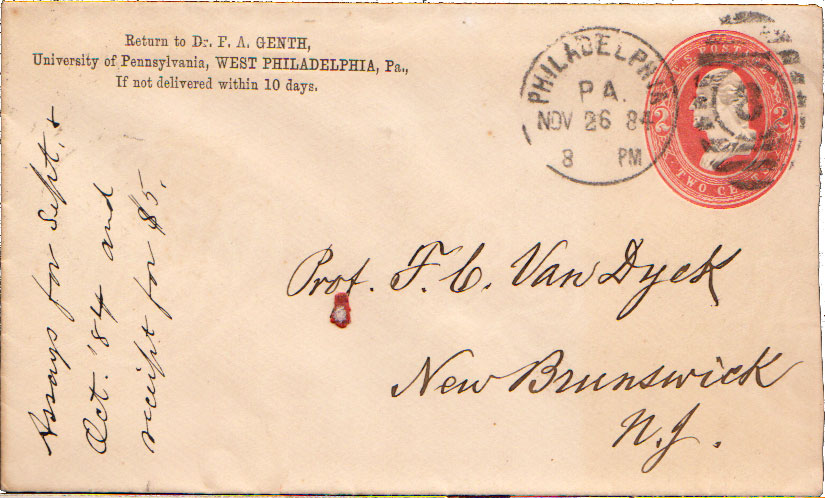 Return to Dr. F. A. GENTH,
University of Pennsylvania, WEST PHILADELPHIA, Pa.,
If not delivered within 10 days.
PHILADELPHIA
PA.
NOV 26 84
8 PM
U.S. POSTAGE
2 2
TWO CENTS
Prof. F. C. Van Dyck
New Brunswick
N.J.
Assays for Sept. &
Oct. '84 and
receipt for $5.